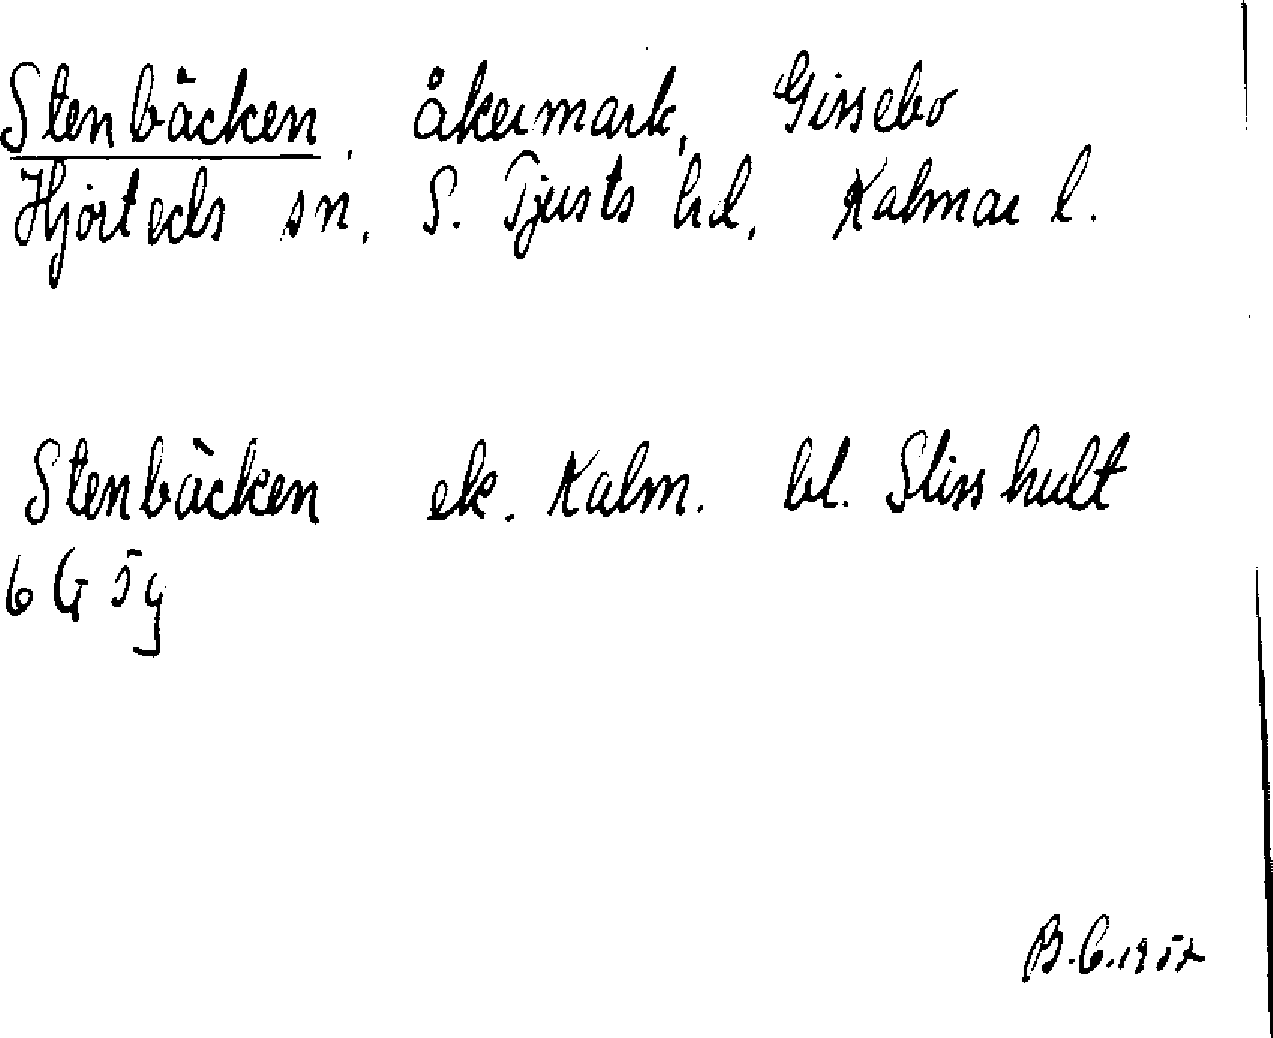 Stenbäcken, åkermark, Gissebo
Hjorteds sn. S. Tjusts hd. Kalmar l.
Stenbäcken ek. Kalm. bl. Slisshult
6 G 5g
B.G. 1952